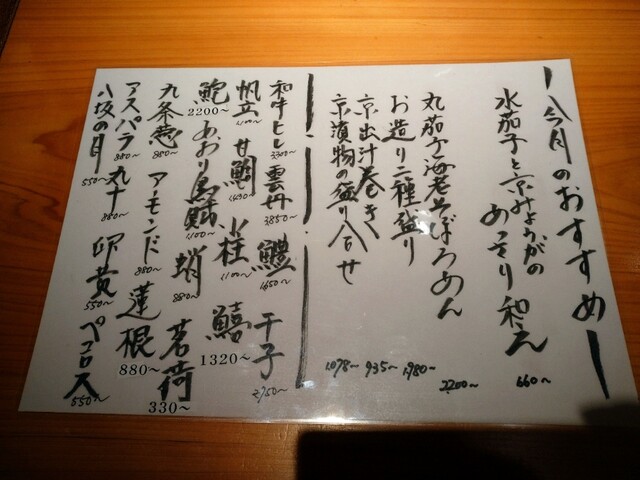 今月のおすすめ
水茄子と京みょうがの
あっさり和え 660~
丸茄子海老そぼろあん 2200~
お造り二種盛り 1,980~
京出汁巻き 935~
京漬物の盛り合せ 1,078~
和牛ヒレ 3300~ 雲丹 3850~ 鱧 1650~ 干子 2,750~
帆立 1100~ 甘鯛 1430~ 小柱 1100~ 鱚 1320~
鮑 2200~ あおり烏賊 1100~ 蛸 880~ 茗荷 330~
九条葱 880~ アーモンド 880~ 蓮根 880~
アスパラ 880~ 丸十 880~ 卵黄 550~ ペコロス 550~
八坂の月 550~